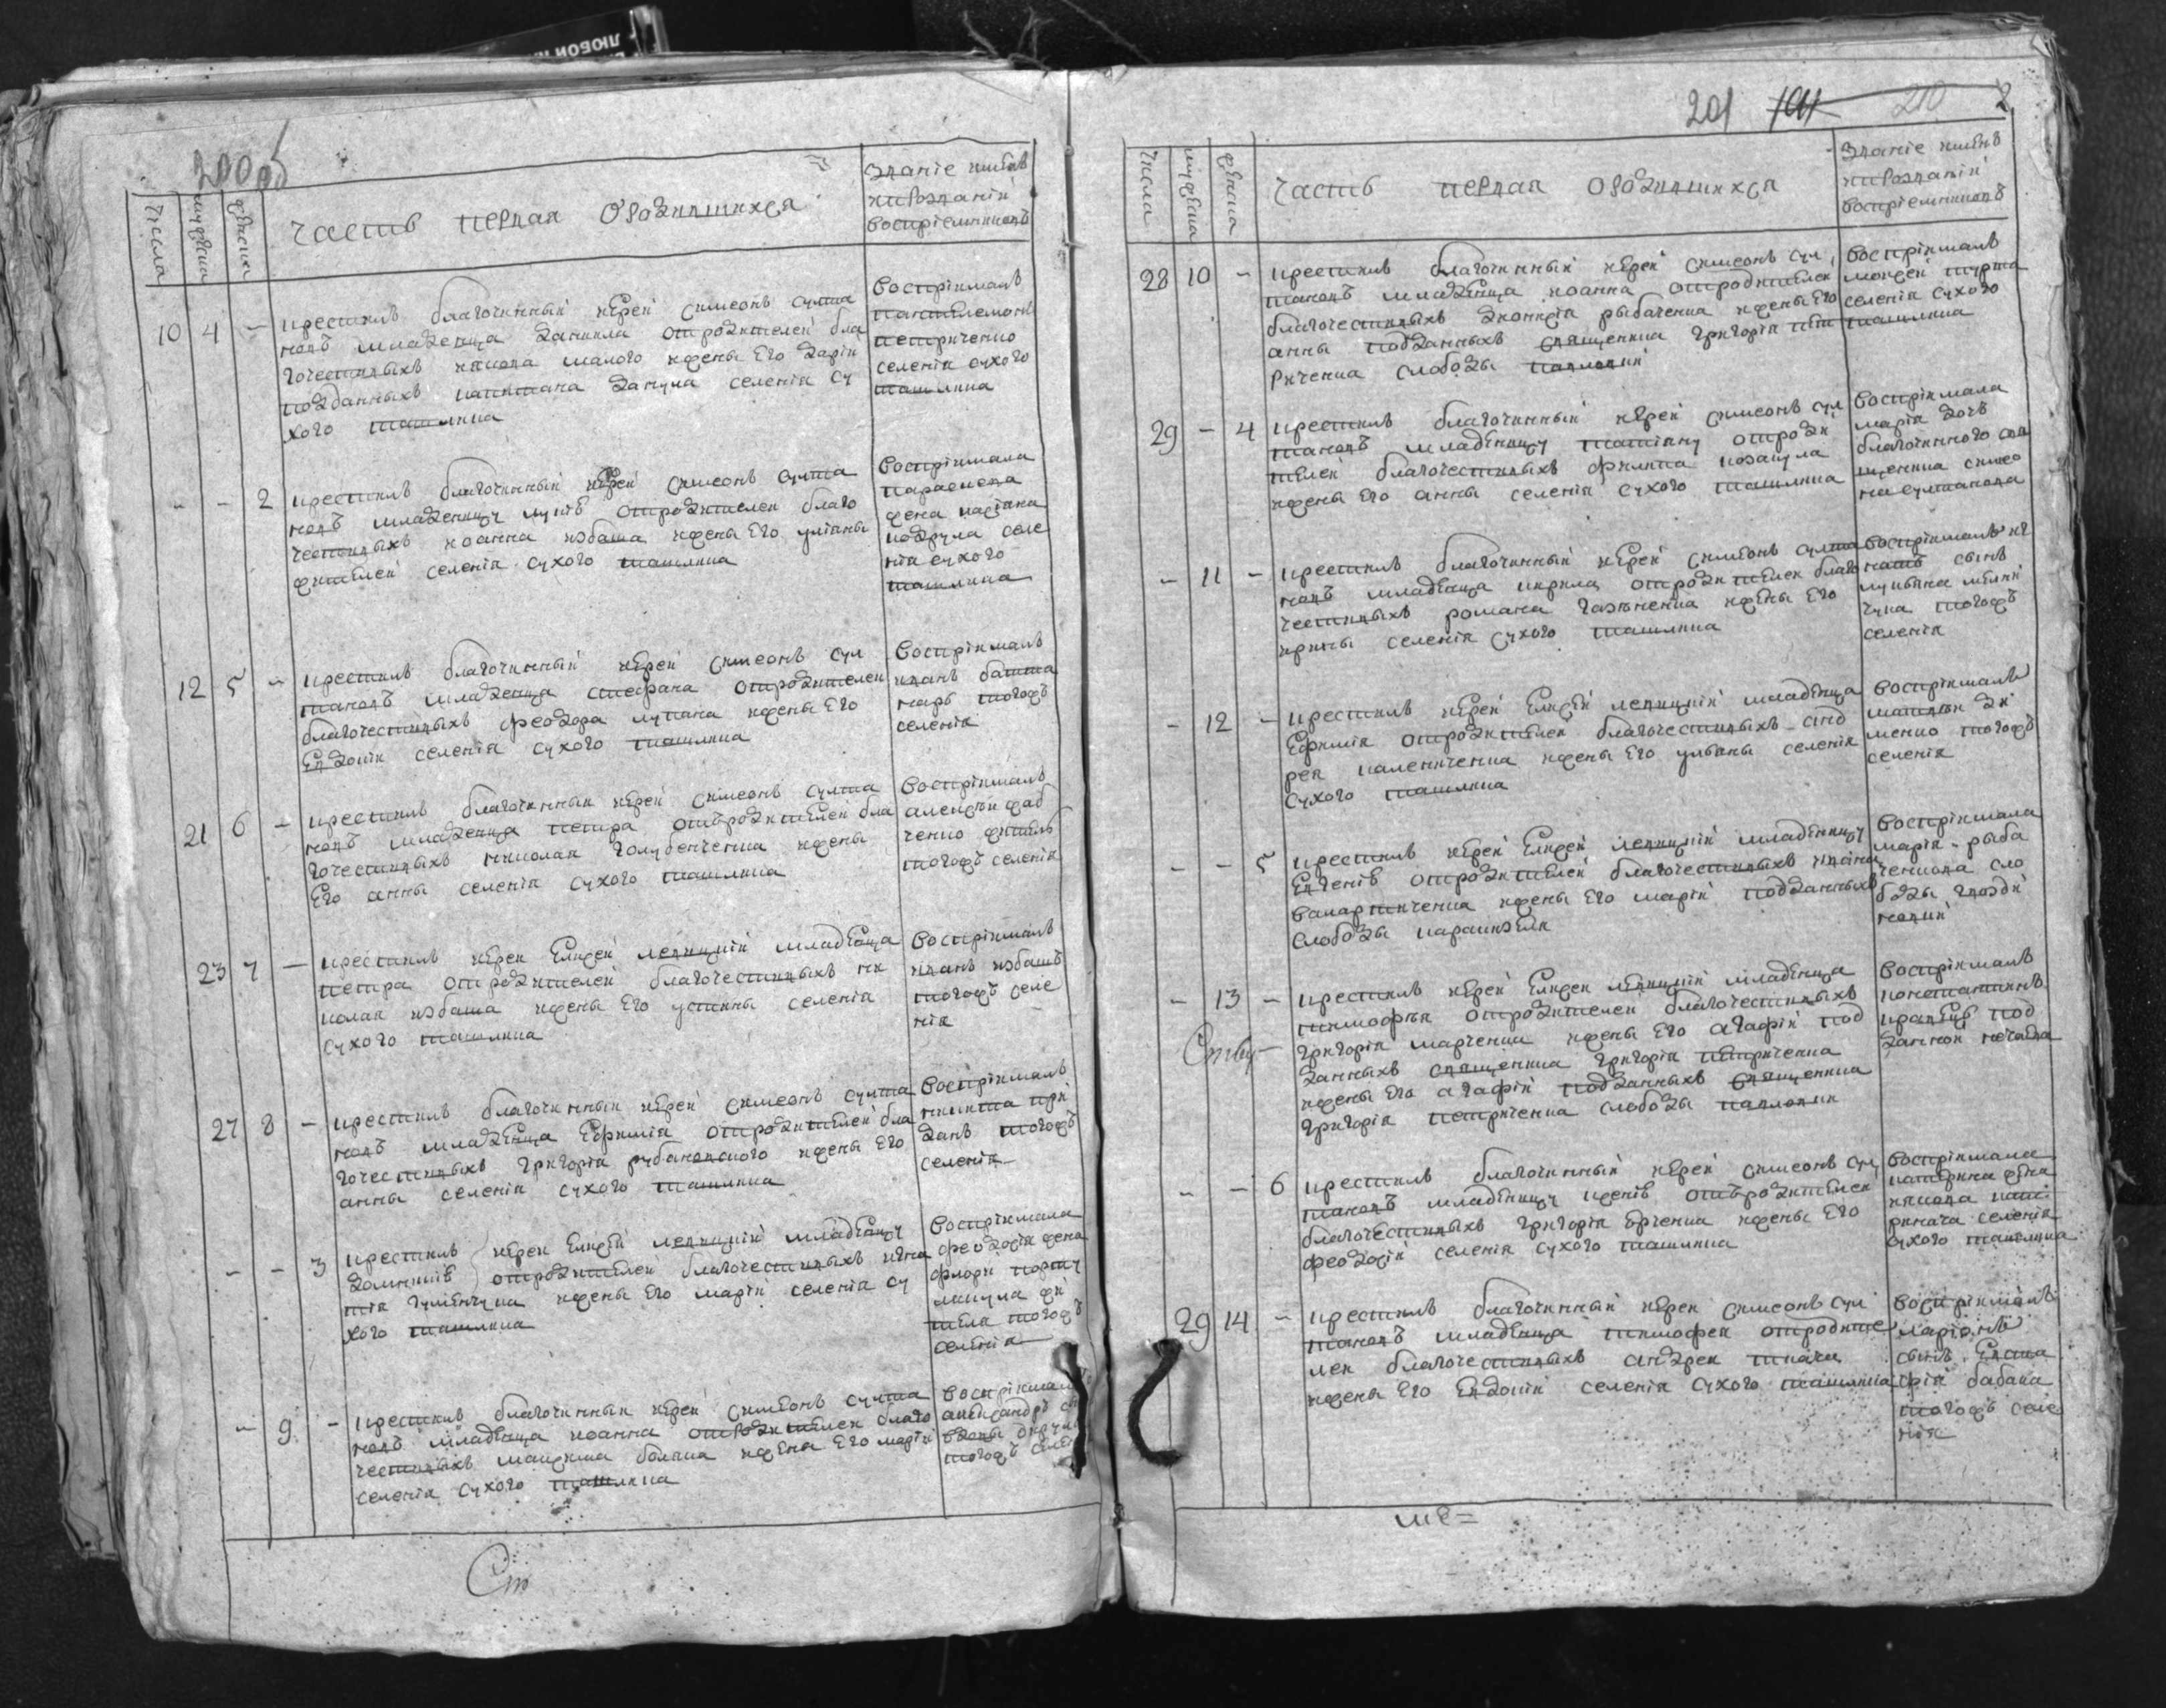 200об
числа
мужеска
женска
Часть первая О родившихся
Званїе имѣнъ
и прозванїй
воспрїемниковъ
10 4 - крестилъ благочинный їерей симеонъ султа
новъ младенца даниила отродителей бла
гочестивыхъ якова малого жены Его дарїи
подданныхъ капитана данула селенїя су
хого ташлика
воспрїималъ
пантелемонъ
петриченко
селенїя сухого
ташлика
- - 2 крестилъ благочинный їерей симеонъ султа
новъ младеницу отродителей благо
честивыхъ иоанна избаша жены Его улїяны
жителей селенїя сухого ташлика
воспрїимала
параскева
жена
селе
нїя сухого
ташлика
12 5 - крестилъ благочинный їерей симеонъ сул
тановъ младенца стефана отродителей
благочестивыхъ феодора лупана жены Его
Евдокїи селенїя сухого ташлика
воспрїималъ
иванъ башта
наръ тогожъ
селенїя
21 6 - крестилъ благочинный їерей симеонъ султа
новъ младенца петра отъродителей бла
гочестивыхъ николая голубенченка жены
Его анны селенїя сухого ташлика
воспрїималъ
алексѣй
ченко житель
тогожъ селенїя
23 7 - крестилъ їерей Елисей левицкїй младенца
петра отродителей благочестивыхъ ни
колая избаша жены Его устины селенїя
сухого ташлика
воспрїималъ
иванъ избашъ
тогожъ селе
нїя
27 8 - крестилъ благочинный їерей симеонъ султа
новъ младенца Ефимїя отродителей бла
гочестивыхъ григорїя рубановского жены Его
анны селенїя сухого ташлика
воспрїималъ
никита при
данъ тогожъ
селенїя
- - 3 крестилъ їерей Елисей левицкїй младеницу
домникїю отродителей благочестивыхъ игна
тїя гуменчука жены Его марїи селенїя су
хого ташлика
воспрїимала
феодосїя жена
флори
жи
теля тогожъ
селенїя
- 9 - крестилъ благочинный їерей симеонъ султа
новъ младенца иоанна отродителей благо
честивыхъ максима жены Его марїи
селенїя сухого ташлика
воспрїималъ
александръ
тогожъ селен
Ст
201 210 2
числа
мужеска
женска
Часть первая О родившихся
Званїе имѣнъ
и прозванїй
воспрїемниковъ
28 10 - крестилъ благочинный їерей симеонъ сул
тановъ младенца иоанна отродителей
благочестивыхъ рыбаченка жены Его
анны подданныхъ священника григорїя пет
риченка слободы павловки
воспрїималъ
мойсей
селенїя сухого
ташлика
29 - 4 крестилъ благочинный їерей симеонъ сул
тановъ младеницу татїану отроди
телей благочестивыхъ филипа козакула
жены Его анны селенїя сухого ташлика
воспрїимала
марїя дочь
благочинного свя
щенника симео
на султанова
- 11 - крестилъ благочинный їерей симеонъ султа
новъ младенца кирила отродителей благо
честивыхъ романа жены Его
ирины селенїя сухого ташлика
воспрїималъ иг
натъ сынъ
лукьяна мелни
чука тогожъ
селенїя
- 12 - крестилъ їерей Елисей левицкїй младенца
Ефимїя отродителей благочестивыхъ анд
рея каленченка жены Его ульяны селенїя
сухого ташлика
воспрїималъ
матвѣй ди
менко тогожъ
селенїя
- - 5 крестилъ їерей Елисей левицкїй младеницу
Евгенїю отродителей благочестивыхъ ивана
жены Его марїи подданныхъ
слободы
воспрїимала
марїя рыба
ченкова сло
боды гвозди
ковки
- 13 - крестилъ їерей Елисей левицкїй младенца
тимофея отродителей благочестивыхъ
григорїя марченка жены Его агафїи под
данныхъ священника григорїя петриченка
жены Его агафїи подданныхъ священника
григорїя петриченка слободы павловки
воспрїималъ
констатинъ
кравецъ под
данной
- - 6 крестилъ благочинный їерей симеонъ сул
тановъ младеницу ксенїю отъродителей
благочестивыхъ григорїя жены Его
феодосїи селенїя сухого ташлика
воспрїимала
катерина жена
якова
селенїя
сухого ташлика
29 14 - крестилъ благочинный їерей симеонъ сул
тановъ младенца тимофея отродите
лей благочестивыхъ андрея ткача
жены Его Евдокїи селенїя сухого ташлика
воспрїималъ
ларїонъ
сынъ Евста
фїя бабака
тогожъ селе
нїя